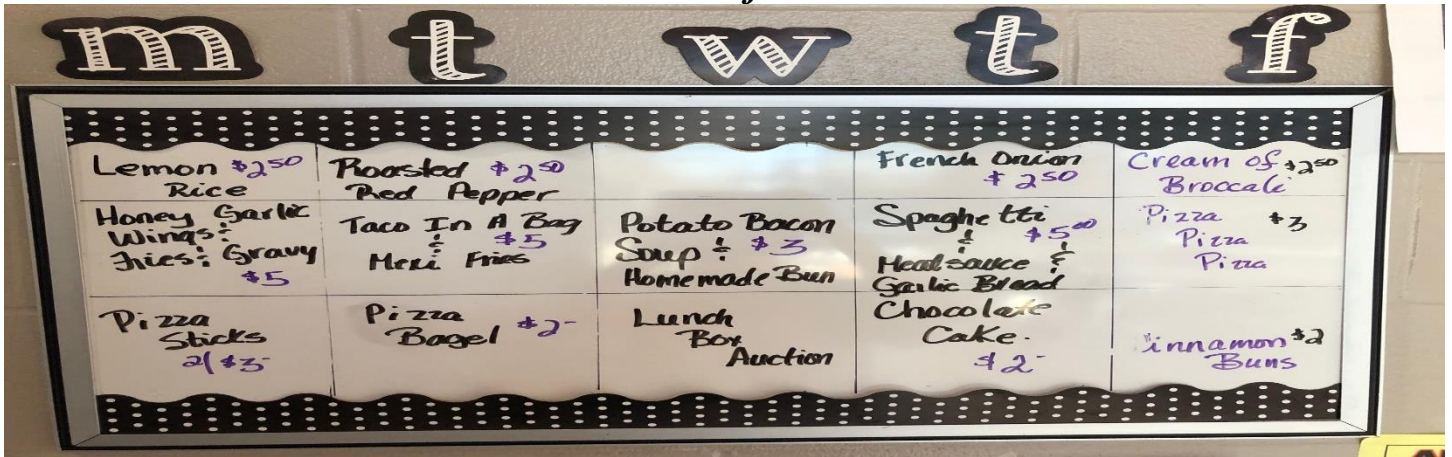 m t w t f
Lemon $2.50
Rice
Roasted $2.50
Red Pepper
French Onion
$2.50
Cream of $2.50
Broccali
Honey Garlic
Wings &
Fries & Gravy
$5
Taco In A Bag
& $5
Mexi Fries
Potato Bacon
Soup & $3
Homemade Bun
Spaghetti
& $5.00
Meatsauce &
Garlic Bread
Pizza $3
Pizza
Pizza
Pizza
Sticks
2/$3-
Pizza
Bagel $2-
Lunch
Box
Auction
Chocolate
Cake.
$2-
innamon $2
Buns